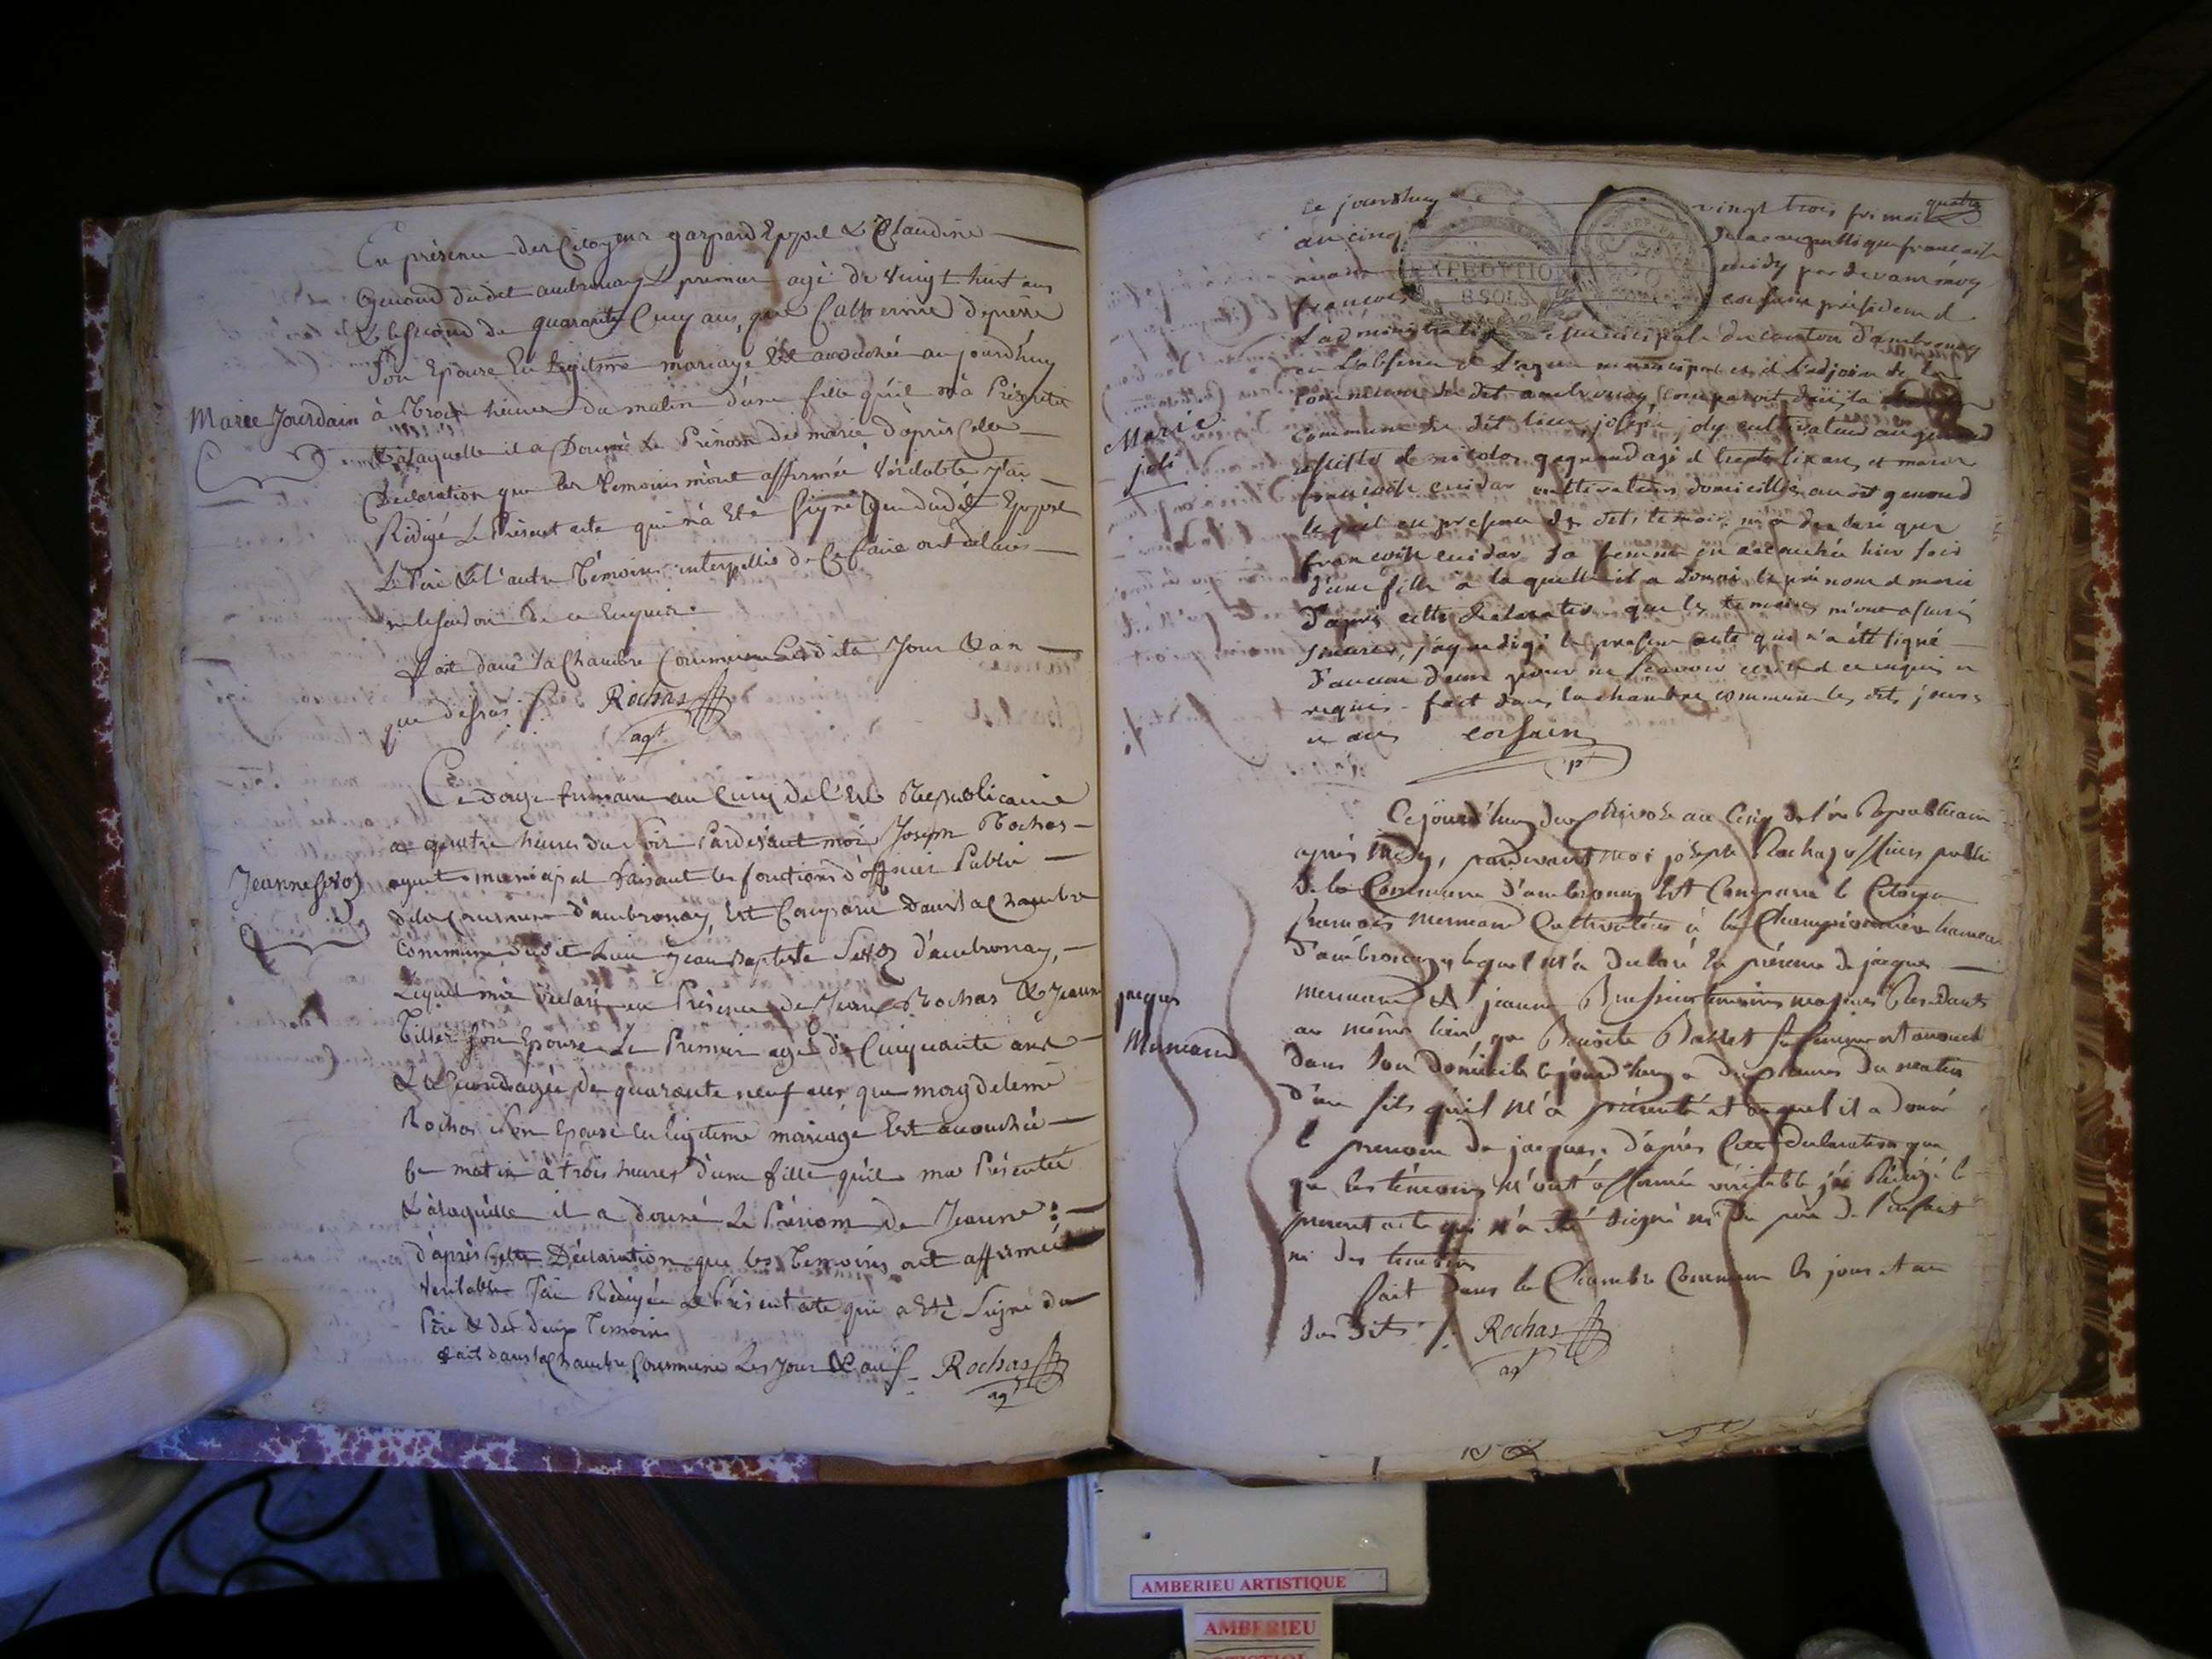 En présence des Citoyens gaspard Eppel & Claudine
Genoud dudit ambronay Le premier agé de vingt huit ans
& le second de quarante Cinq ans, que Catherine
Son Epouse En Legitime mariage Est accouchée aujourdhuy
Marie Jourdain
à trois heures du matin d'une fille qu'il m'a Présenté
& àlaquelle il a Donné Le Prénom de marie d'après Cette
Déclaration que les temoins m'ont affirmée Véritable J'ai
Rédigé Le Présent acte qui n'a Eté Signé que dudit Eppel
Le Père & l'autre Témoins interpellés de Ce faire ont déclaré
ne le savoir de ce Enquis
fait dans la Chambre Commune Lesdits Jour & an
que dessus ./. Rochas
agt
Ce douze frimaire an Cinq de l'Ere Republicaine
a quatre heures du Soir Pardevant moi Joseph Rochas
Jeanne
agent municipal faisant les fonctions d'officier Public
dela Commune d'ambronay, Est Comparu dans la Chambre
Commune dudit Lieu Jean Baptiste d'ambronay,
Lequel m'a déclaré en Présence de Rochas & Jeanne
Son Epouse Le Premier agé de Cinquante ans
& la Seconde agée de quarante neuf ans que
Rochas son Epouse en legitime mariage Est accouchée
Ce matin à trois heures d'une fille qu'il ma Présentée
& àlaquelle il a donné Le Prénom de Jeanne :
d'après Cette Déclaration que les Temoins ont affirmée
Veritable J'ai Rédigé le Présent acte qui a Eté Signé du
Père & des deux Temoins
fait dans la Chambre Commune Les Jour & an Rochas
agt
quatre
ce jourdhuy vingt trois frimaire
an cinq de la republique francaise
midy par devant moy
françois corsain président d
L'administration municipale du canton d'ambronay
en L'absence de L'agent municipal et de L'adjoint de la
commune du dit ambronay, comparoit dans la
Marie
joli
commune du dit lieu, joseph joly cultivateur au genoud
assisté de nicolas gagnaud agé d trente six ans, et marie
francoise cultivateurs domiciliés au dit genoud
lequel en presence des dits temoins m'a declaré que
francoise sa femme est accouchée hier soir
d'une fille à laquelle il a donné le prénom d marie
d'apres cette declaration que les temoins m'ont assuré
sincere, j'ay redigé le present acte qui n'a été signé
d'aucun d'eux pour ne scavoir ecrire d ce enquis et
requis. fait dans la chambre commune les dits jours
et an corsain
pt
Cejourd'huy deux Nivose an Cinq de l'ère Republicaine
après Midy, pardevant Moi joseph Rochas officier public
de la Commune d'ambronay Est Comparu le Citoyen
francois Mermand Cultivateur à la Championnière hameau
d'ambronay lequel m'a declaré En présence de jacques
jacques
Mermand
Mermand et jeanne temoins majeurs Residants
au même lieu, que Benoite Ballet sa femme est accouché
dans Son domicile cejourd'huy a deux heures du matin
d'un fils qu'il M'a présenté et auquel il a donné
le prenom de jacques. d'après Cette declaration que
que les témoins M'ont affirmée véritable j'ai Rédigé le
present acte qui n'a été Signé ni du père de l'enfant
ni des temoins
fait dans la Chambre Commune les jour et an
Sus dits ./. Rochas
agt
EXPEDITION
8 SOLS
AMBERIEU ARTISTIQUE
AMBERIEU